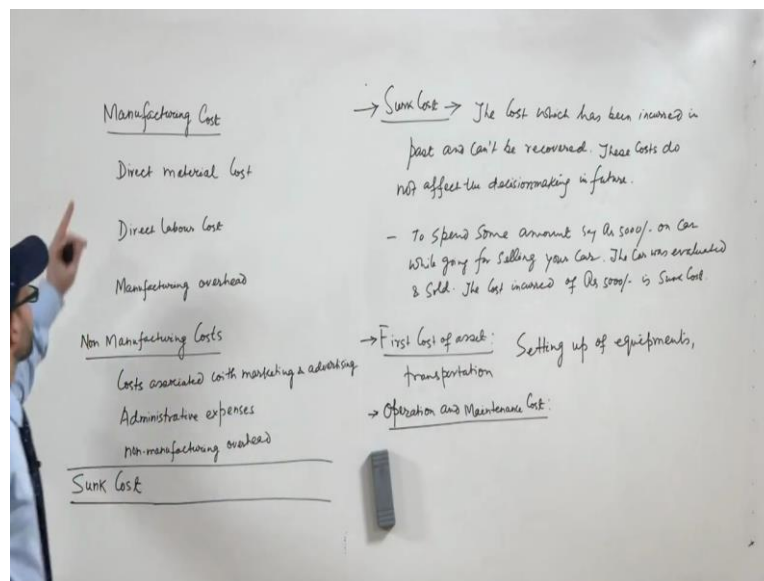 Manufacturing Cost
Direct material Cost
Direct labour Cost
Manufacturing overhead
Non Manufacturing Costs
Costs associated with marketing & advertising
Administrative expenses
non-manufacturing overhead
Sunk Cost
→ Sunk Cost → The Cost which has been incurred in
past and Can't be recovered. These Costs do
not affect the decisionmaking in future.
- To spend Some amount say Rs 5000/- on Car
while going for selling your Car. The Car was evaluated
& Sold. The Cost incurred of Rs 5000/- is Sunk Cost.
→ First Cost of asset: Setting up of equipments,
transportation
→ Operation and Maintenance Cost: